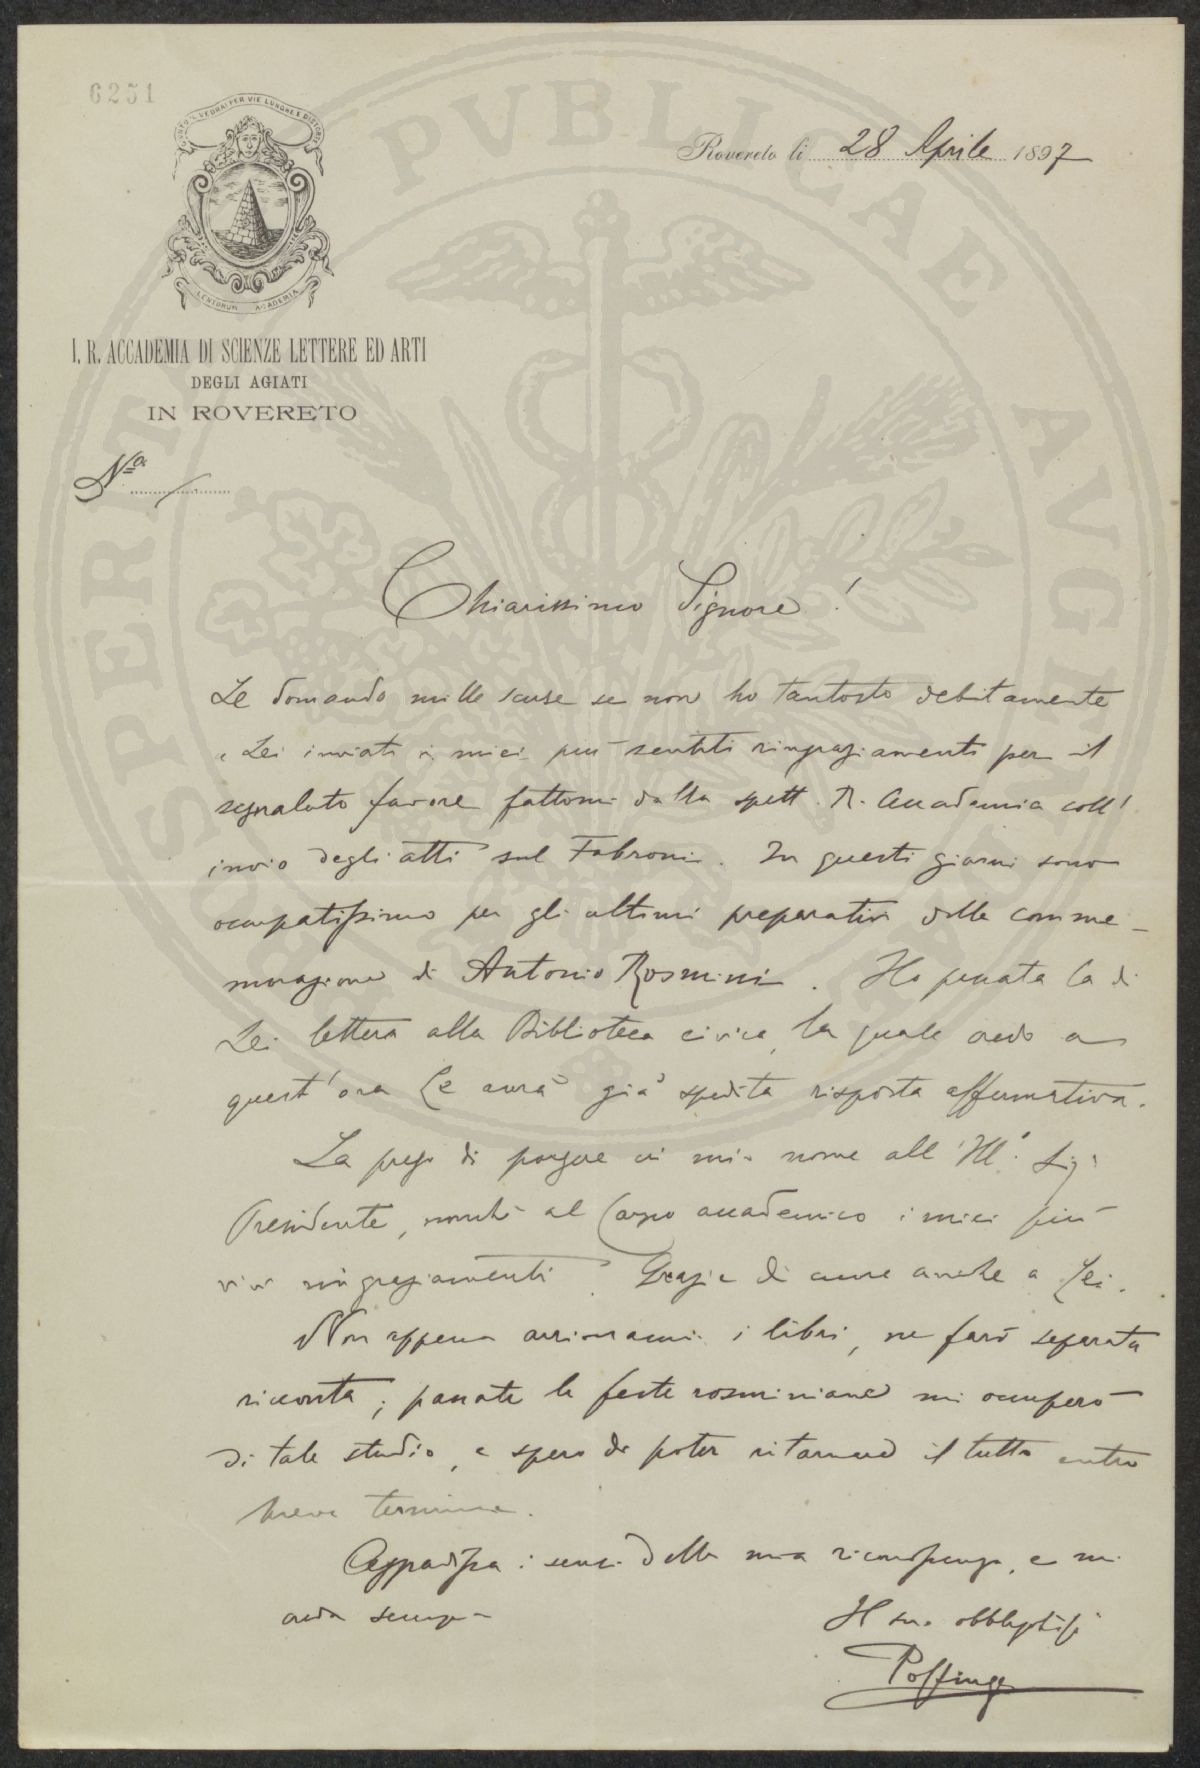 6251
GIUNTO 'L VEDRAI PER VIE LUNGHE E DISTORTE
LENTORUM ACADEMIA
Rovereto li 28 Aprile 1897
I. R. ACCADEMIA DI SCIENZE LETTERE ED ARTI
DEGLI AGIATI
IN ROVERETO
Nº /
PROSPERITATI PVBLICAE AVGENDAE
Chiarissimo Signore!
Le domando mille scuse se non ho tantosto debitamente
a Lei inviati i miei più sentiti ringraziamenti per il
segnalato favore fattomi dalla spett. R. Accademia coll'
invio degli atti sul Fabroni. In questi giorni sono
occupatissimo per gli ultimi preparativi della comme-
morazione di Antonio Rosmini. Ho passata la di
Lei lettera alla Biblioteca civica, la quale credo a
quest'ora Le avrà già spedita risposta affermativa.
La prego di porgere in mio nome all'Ill.º Sig.
Presidente, nonchè al Corpo accademico i miei più
vivi ringraziamenti. Grazie di cuore anche a Lei.
Non appena arriveranno i libri, ne farò separata
ricevuta; passate le feste rosminiane mi occuperò
di tale studio, e spero di poter ritornare il tutto entro
breve termine.
Aggradisca i sensi della mia riconoscenza, e mi
creda sempre
Il suo obbligatiss.